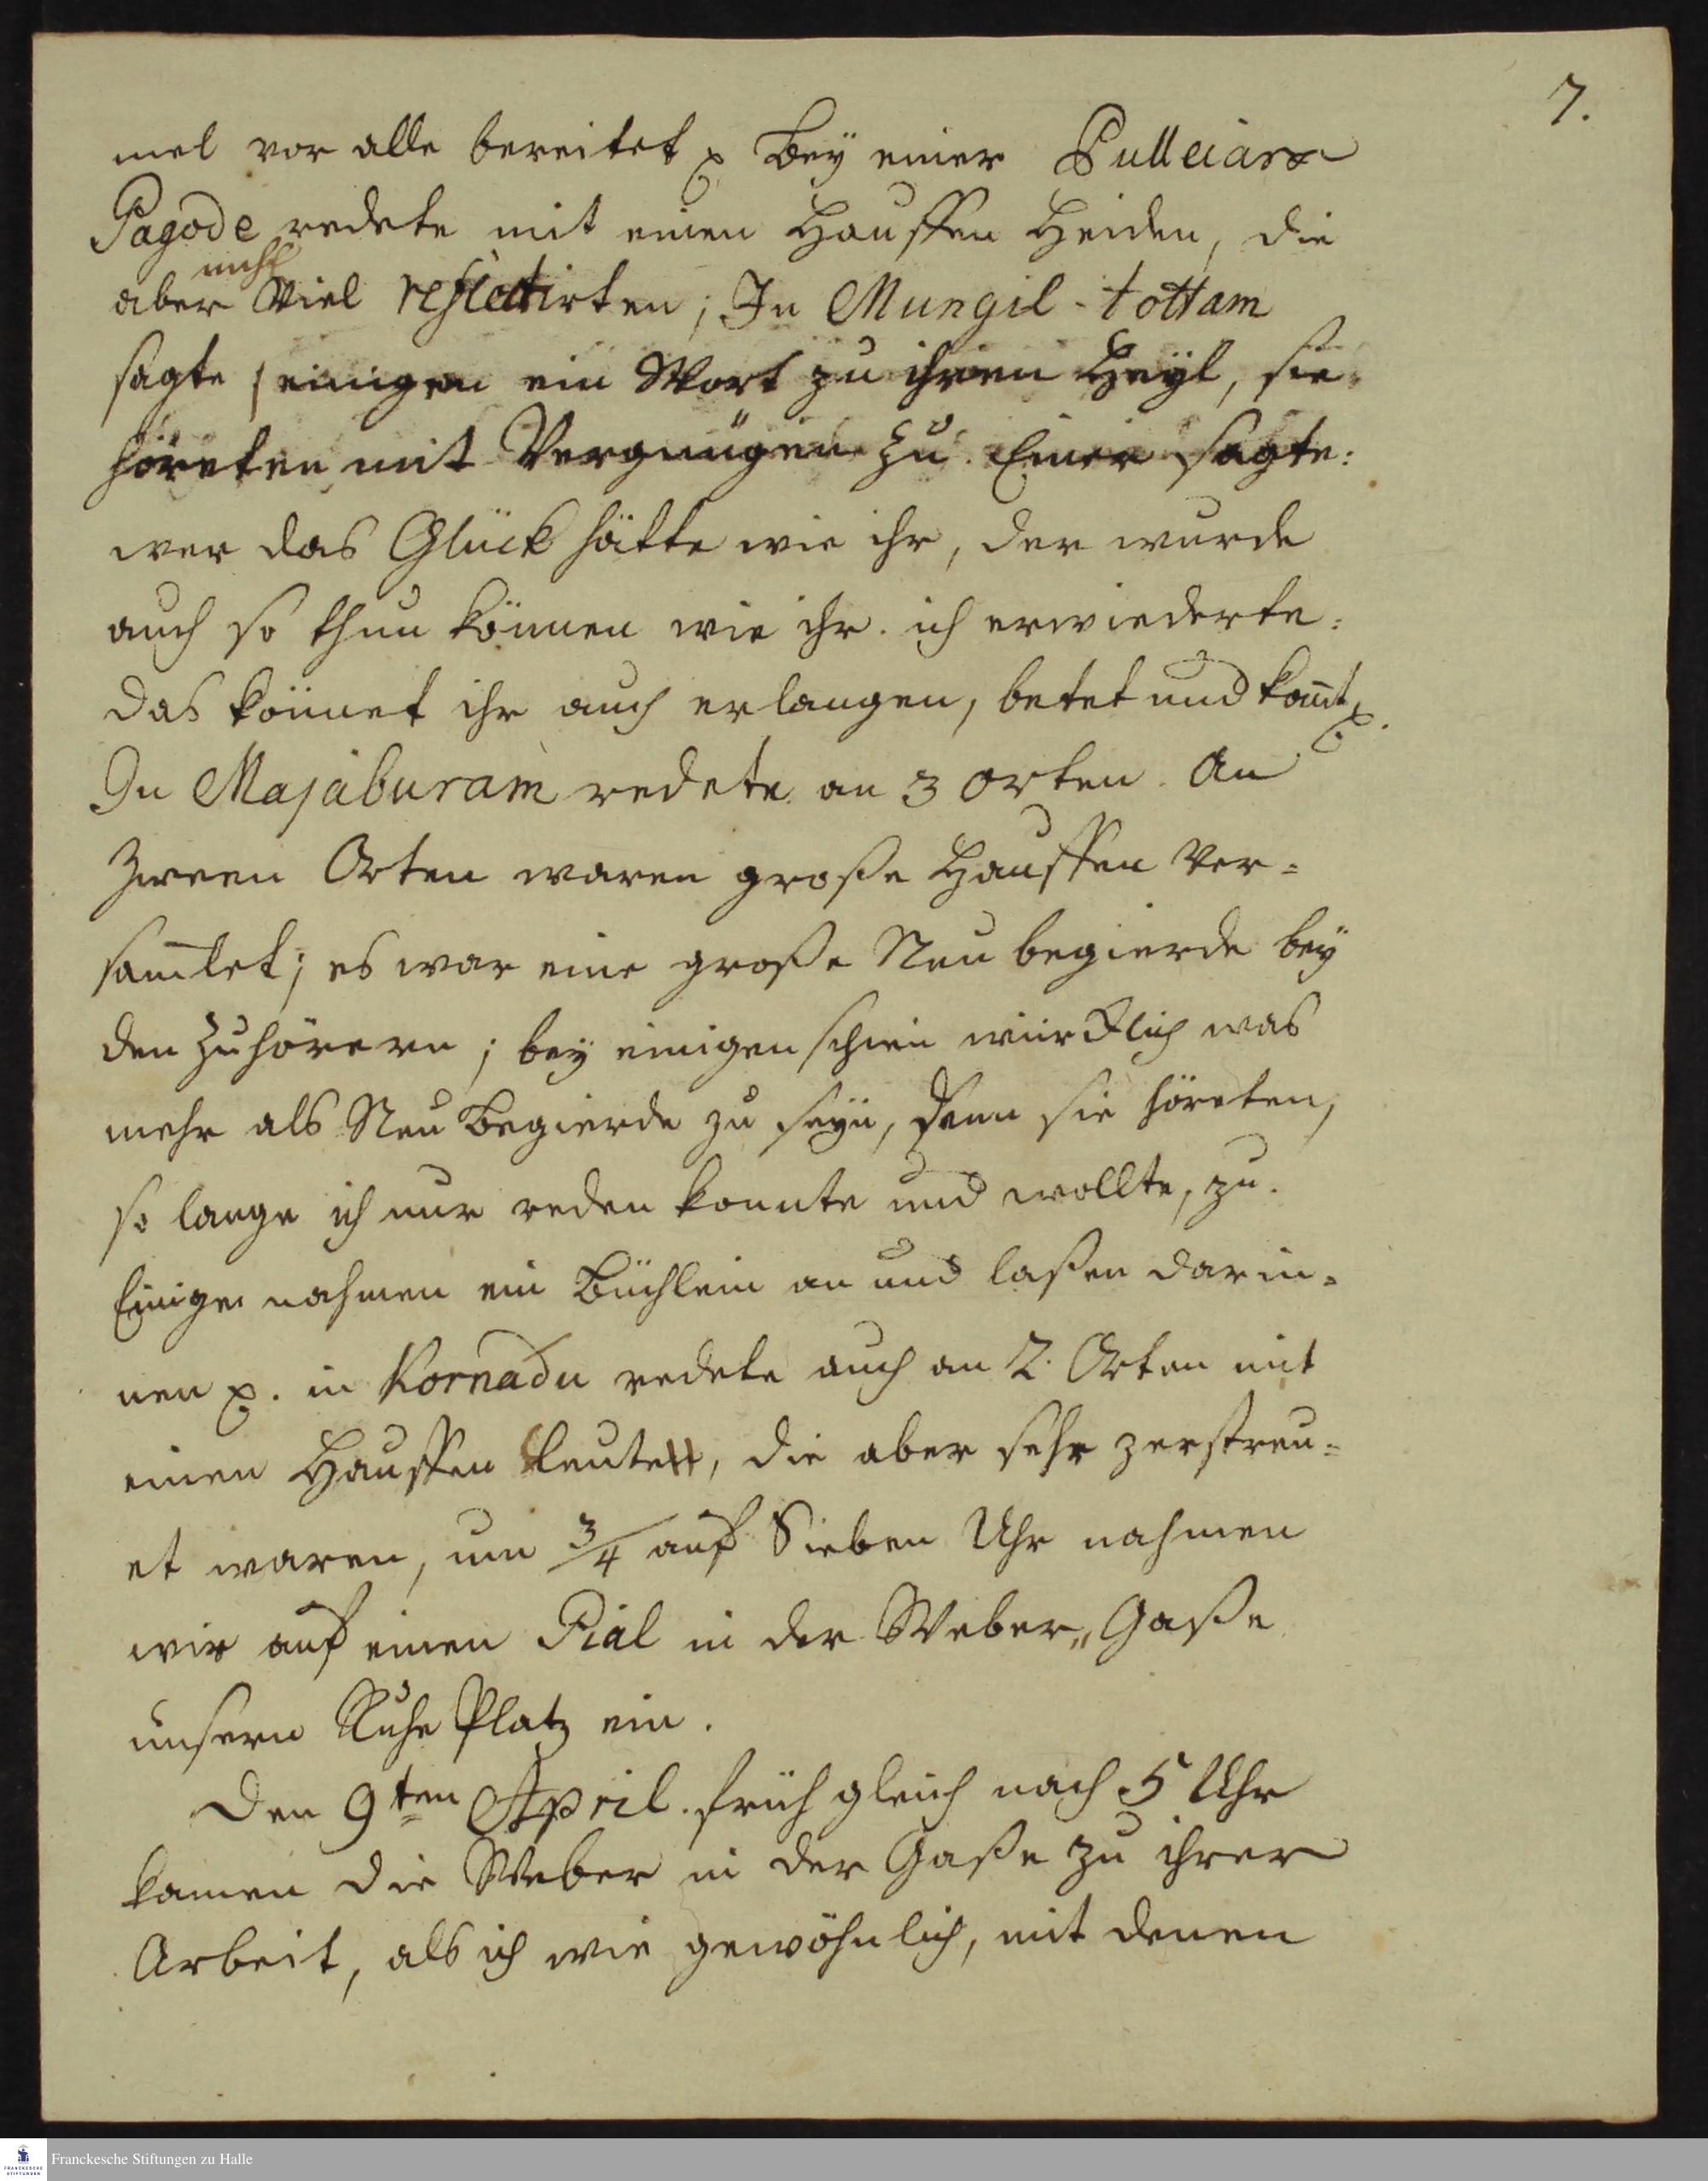 7.
mel vor alle bereitet p Bey einer Pulleiars
Pagode redete mit einen Hauffen Heiden, die
nicht
aber viel reflectirten; In Mungil-tottam
sagte einigen ein Wort zu ihren Heyl, sie
höreten mit Vergnügen zu. Einer sagte:
wer das Glück hätte wie ihr, der wurde
auch so thun können wie ihr. ich erwiederte:
das könnet ihr auch erlangen, betet und kom̄t p.
In Majaburam redete an 3 Orten. An
zween Orten waren große Hauffen ver=
sam̄let; es war eine große Neu begierde bey
den Zuhörern; bey einigen schien würcklich was
mehr als Neu Begierde zu seyn, denn sie höreten,
so lange ich nur reden konnte und wollte, zu.
Einige nahmen ein Büchlein an und laßen darin=
nen p. in Kornadu redete auch an 2. Orten mit
einen Hauffen Leute, die aber sehr zerstreu=
et waren, um 3/4 auf Sieben Uhr nahmen
wir auf einen Pial in der Weber„Gaße
unsern Ruhe Platz ein.
Den 9ten April. früh gleich nach 5 Uhr
kamen die Weber in der Gaße zu ihrer
Arbeit, als ich wie gewöhnlich, mit denen
FRANCKESCHE STIFTUNGEN
Franckesche Stiftungen zu Halle